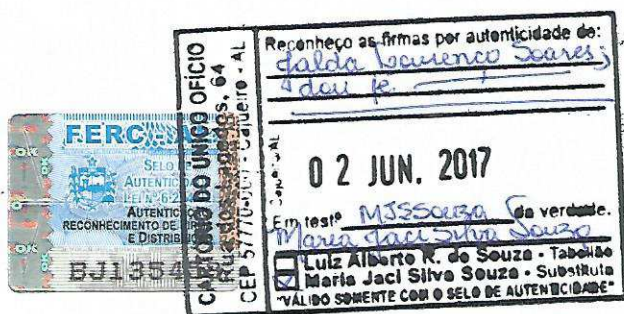 FERC
SELO
AUTENTIC
LEI Nº 6.2
AUTENTIC
RECONHECIMENTO DE
E DISTRIB
BJ1354
CARTÓRIO DO UNICO OFÍCIO
64
CEP 57770-000 - Cajueiro - AL
Reconheço as firmas por autenticidade de:
Jalda Lourenço Soares;
dou fé
02 JUN. 2017
Em testº MJSSouza da verdade.
Maria Jaci Silva Souza
Luiz Alberto R. de Souza - Tabelião
Maria Jaci Silva Souza - Substituta
"VÁLIDO SOMENTE COM O SELO DE AUTENTICIDADE"